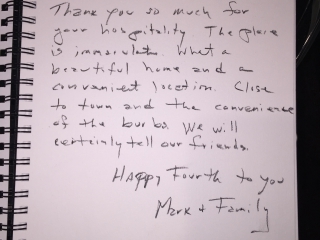 Thank you so much for
your hospitality. The place
is immaculate. What a
beautiful home and a
convenient location. Close
to town and the convenience
of the burbs. We will
certainly tell our friends.
Happy Fourth to you
Mark + Family